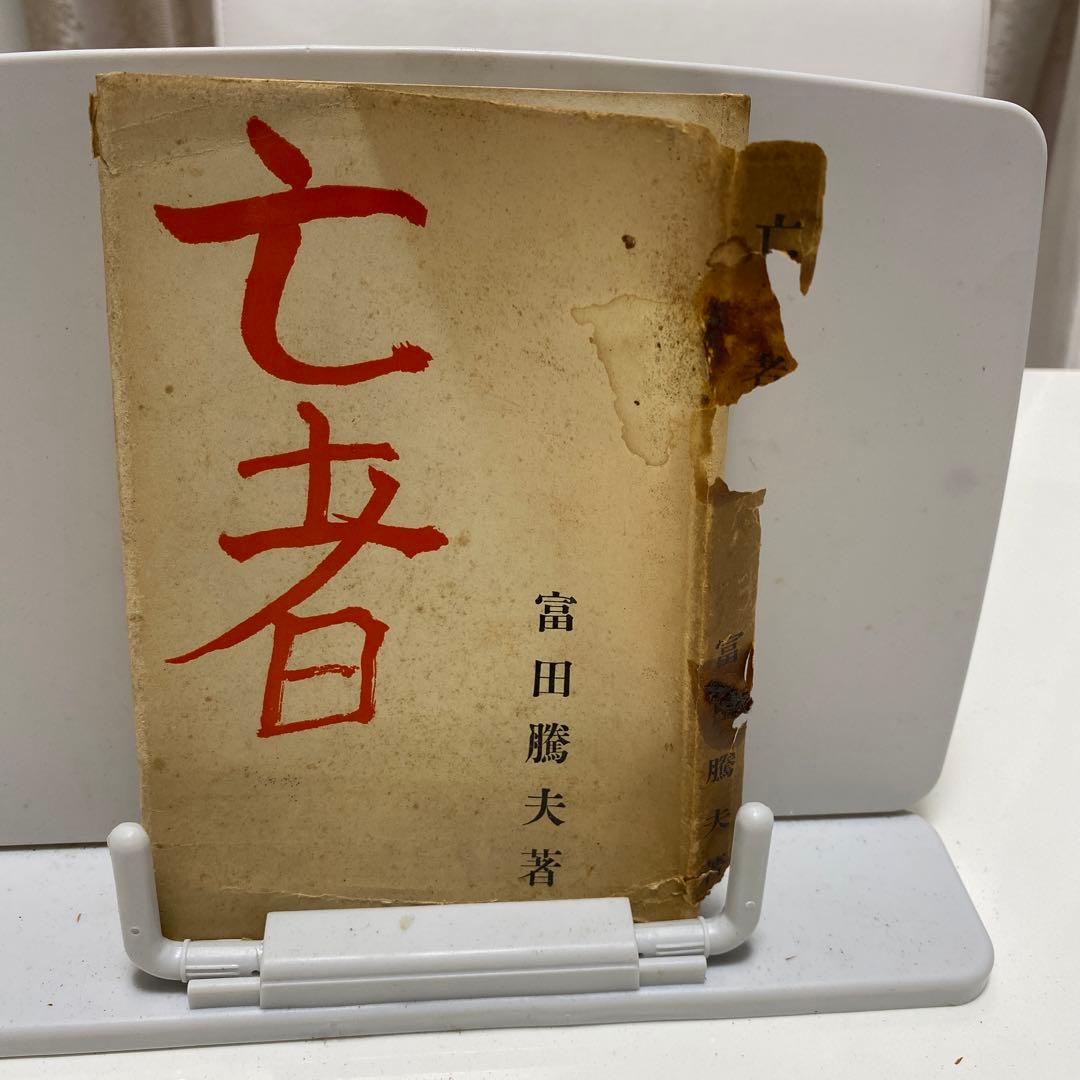 亡者
富田騰夫著
亡者
富 騰夫